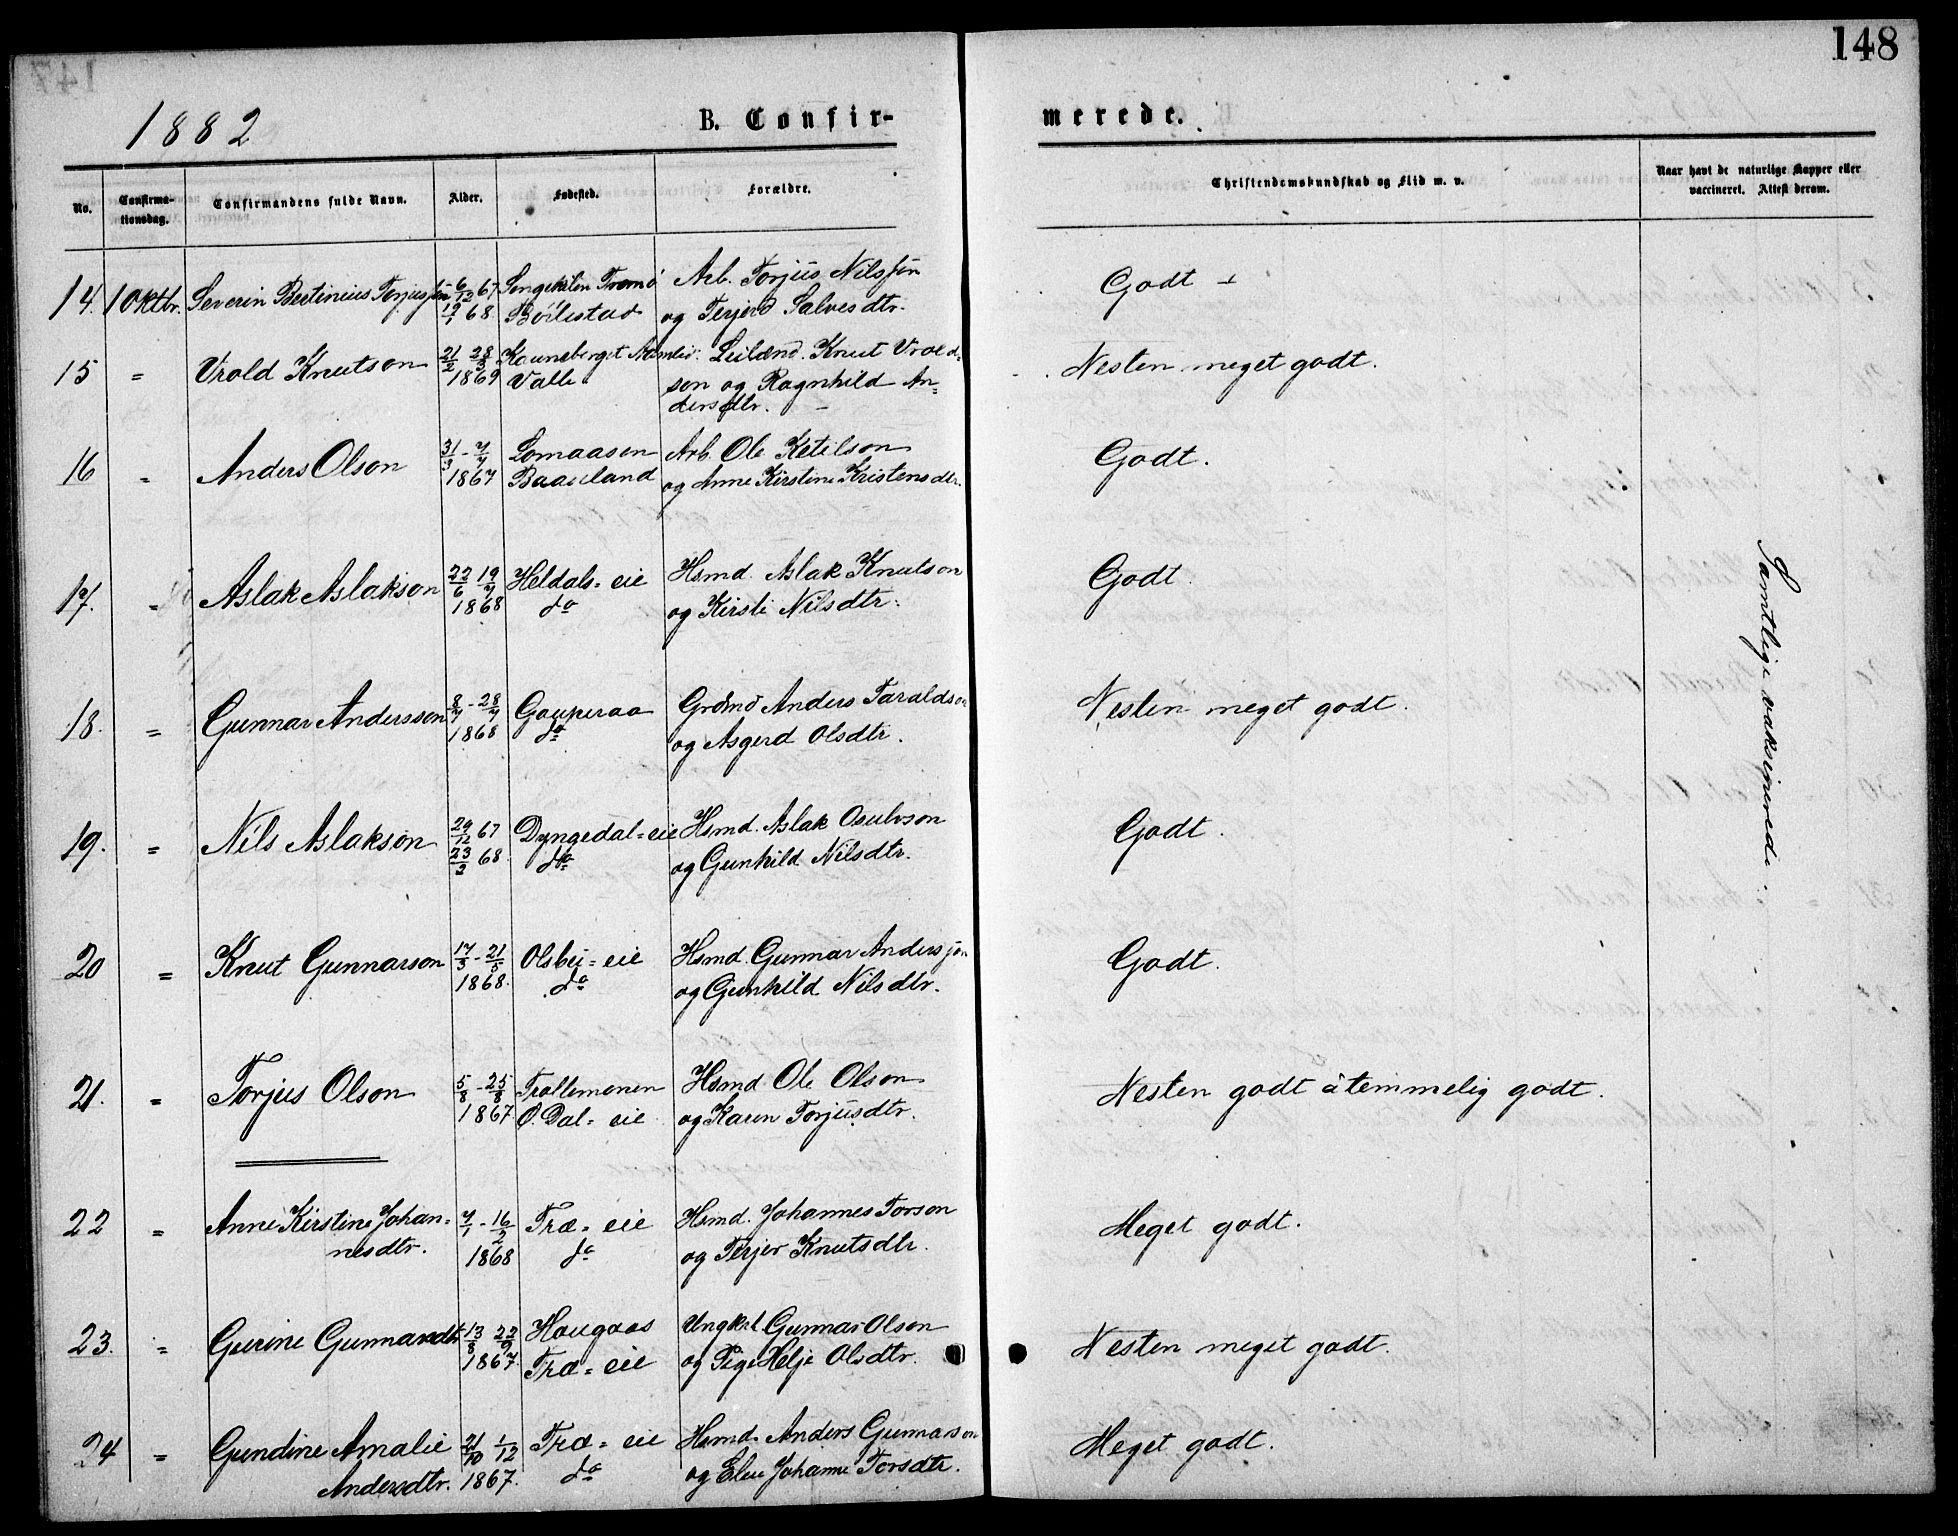 148
1882
B. Confir-
merede.
No.
Confirma-
tionsdag.
Confirmandens fulde Navn.
Alder.
Fødested.
Forældre.
Christendomskundskab og Flid m. v.
Naar havt de naturlige Kopper eller
vaccineret. Attest derom.
14. 1 Oktbr. Severin Bertinius Torjusson 6/12 67 Songekilen Tromö Arb. Torjus Nilsson Godt
12/1 68 Böilestad og Terjerd Salvesdtr.
15 = Vrold Knutson 21/2 28/3 Kauneberget Leilænd. Knut Vrold= Nesten meget godt.
1869 Valle son og Ragnhild An=
dersdtr.
16 = Anders Olson 31/3 - 7/7 Lomaasen Arb. Ole Ketilson Godt.
1867 Baaseland og Anne Kirstine Kristensdtr.
17. = Aslak Aslakson 22/6 19/7 Heldals=eie Hsmd. Aslak Knutson Godt.
1868 do og Kirsti Nilsdtr.
18. = Gunnar Andersson 8/7 - 28/7 Gauperaa Grdmd Anders Taraldson Nesten meget godt.
1868 do og Asgerd Olsdtr.
19. = Nils Aslakson 29/12 67 Dyngedal=eie Hsmd. Aslak Osulvson Godt.
23/2 68 do og Gunhild Nilsdtr.
20 = Knut Gunnarson 17/3 - 21/5 Olsbu=eie Hsmd. Gunnar Andersson Godt.
1868. do og Gunhild Nilsdtr.
21. = Torjus Olson 5/8 - 25/8 Trollemonen Hsmd Ole Olson Nesten godt à temmelig godt.
1867 Ö. Dal=eie og Karen Torjusdtr.
22 = Anne Kirstine Johan= 7/1 - 16/2 Træ=eie Hsmd. Johannes Torson Meget godt.
nesdtr. 1868 do og Terjer Knutsdtr.
23. = Gurine Gunnarsdtr 13/8 22/9 Haugaas Ungkrl. Gunnar Olson Nesten meget godt.
1867. Træ=eie og Pige Helje Olsdtr.
24 = Gundine Amalie 21/10 1/12 Træ=eie Hsmd. Anders Gunnarson Meget godt.
Andersdtr. 1867. do og Elen Johanne Torsdtr.
Samtlige vaksinerede.